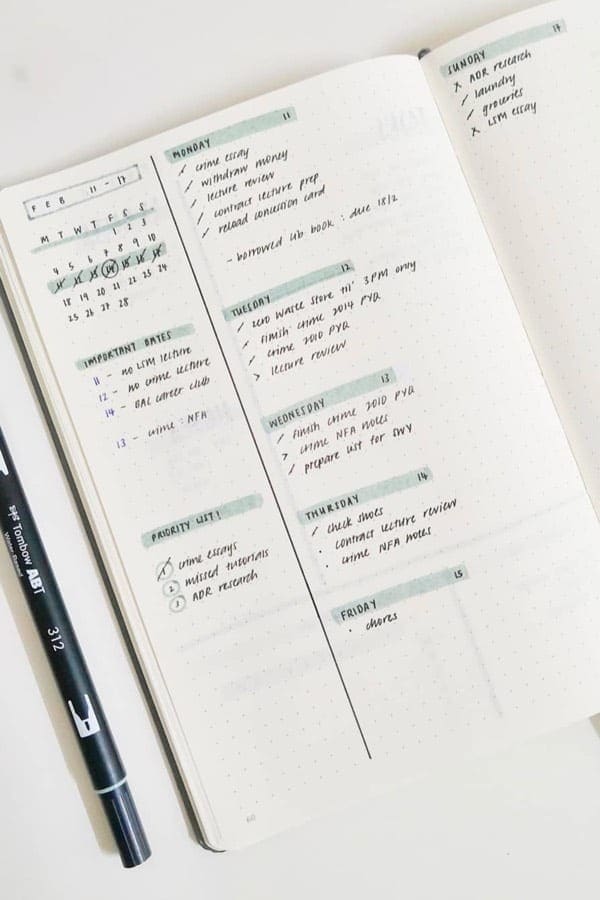 FEB 11 - 17
M T W T F S S
1 2 3
4 5 6 7 8 9 10
11 12 13 14 15 16 17
18 19 20 21 22 23 24
25 26 27 28
IMPORTANT DATES
11 - no LSM lecture
12 - no crime lecture
14 - career club
13 - crime : NFA
PRIORITY LIST!
1 crime essays
2 missed tutorials
3 ADR research
MONDAY 11
/ crime essay
/ withdraw money
/ lecture review
/ contract lecture prep
/ reload concession card
- borrowed lib book : due 18/2
TUESDAY 12
/ zero waste store til' 3PM only
/ finish crime 2014 PYQ
/ crime 2010 PYQ
> lecture review
WEDNESDAY 13
/ finish crime 2010 PYQ
> crime NFA notes
/ prepare list for
THURSDAY 14
/ check shoes
· contract lecture review
· crime NFA notes
FRIDAY 15
· chores
60
SUNDAY 17
x ADR research
/ laundry
/ groceries
x LSM essay
Tombow ABT
312